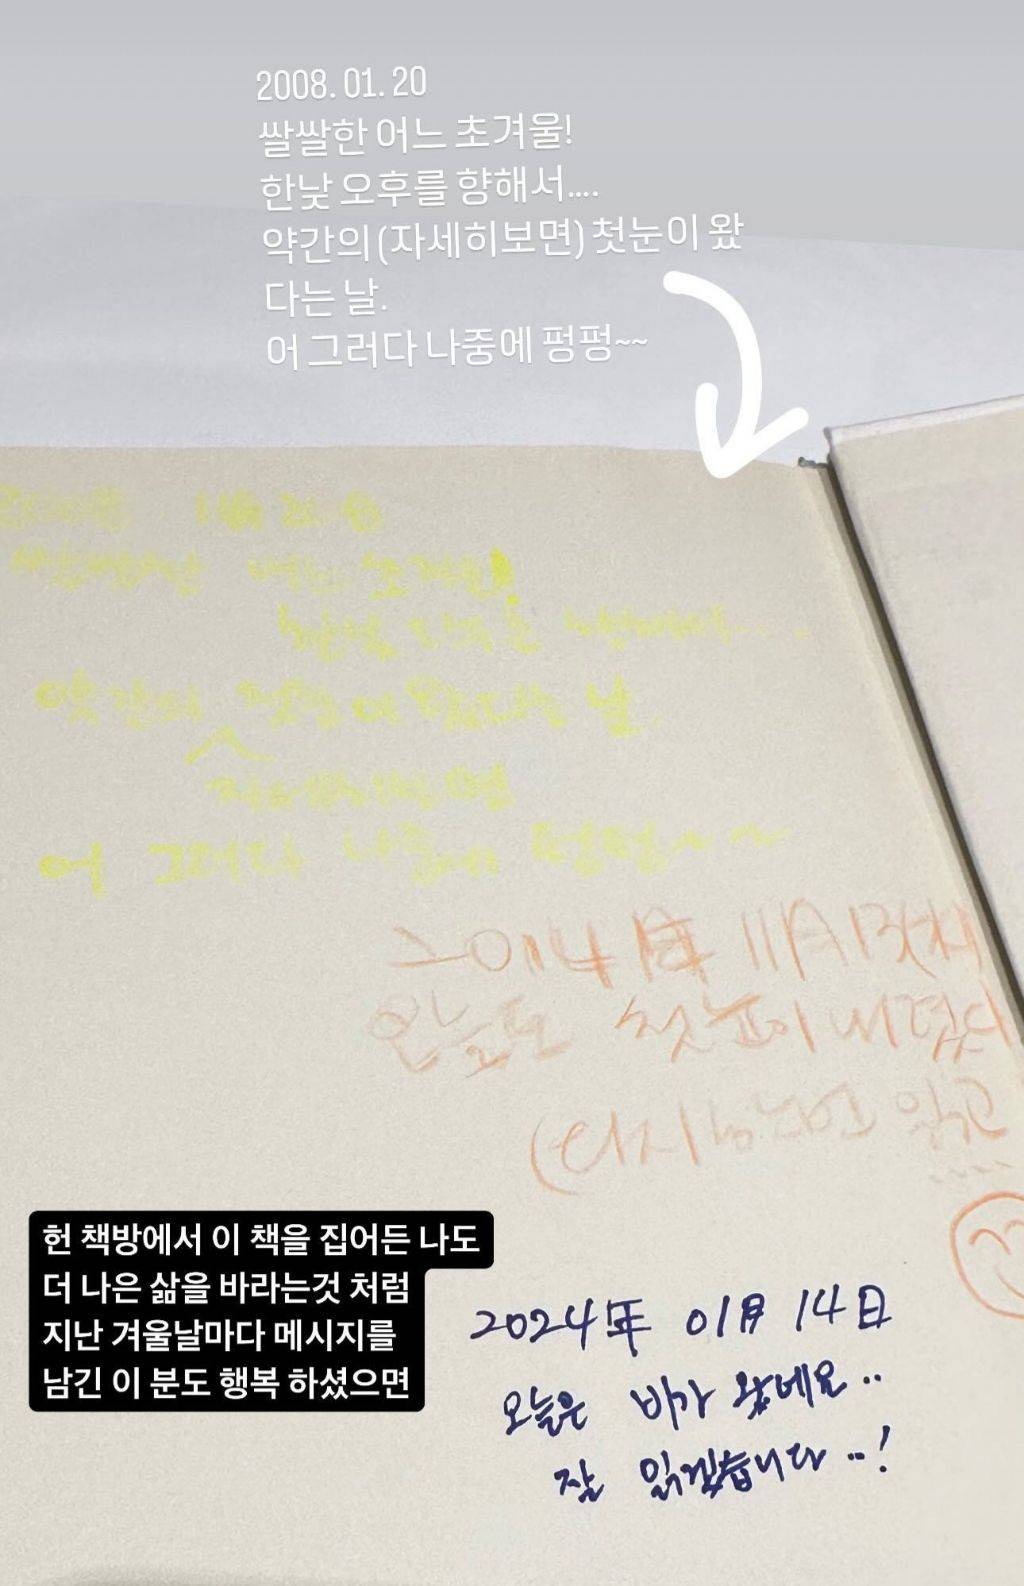 2008. 01. 20
쌀쌀한 어느 초겨울!
한낮 오후를 향해서....
약간의 (자세히보면) 첫눈이 왔
다는 날.
어 그러다 나중에 펑펑~~
1月 20日
초겨울!
약간의 첫눈이 왔다는 날.
자세히보면
어 그러다 나중에 펑펑~~
2014年 11月
오늘도 첫눈이 내렸다
(다시 읽고
헌 책방에서 이 책을 집어든 나도
더 나은 삶을 바라는것 처럼
지난 겨울날마다 메시지를
남긴 이 분도 행복 하셨으면
2024年 01月 14日
오늘은 비가 왔네요..
잘 읽겠습니다..!